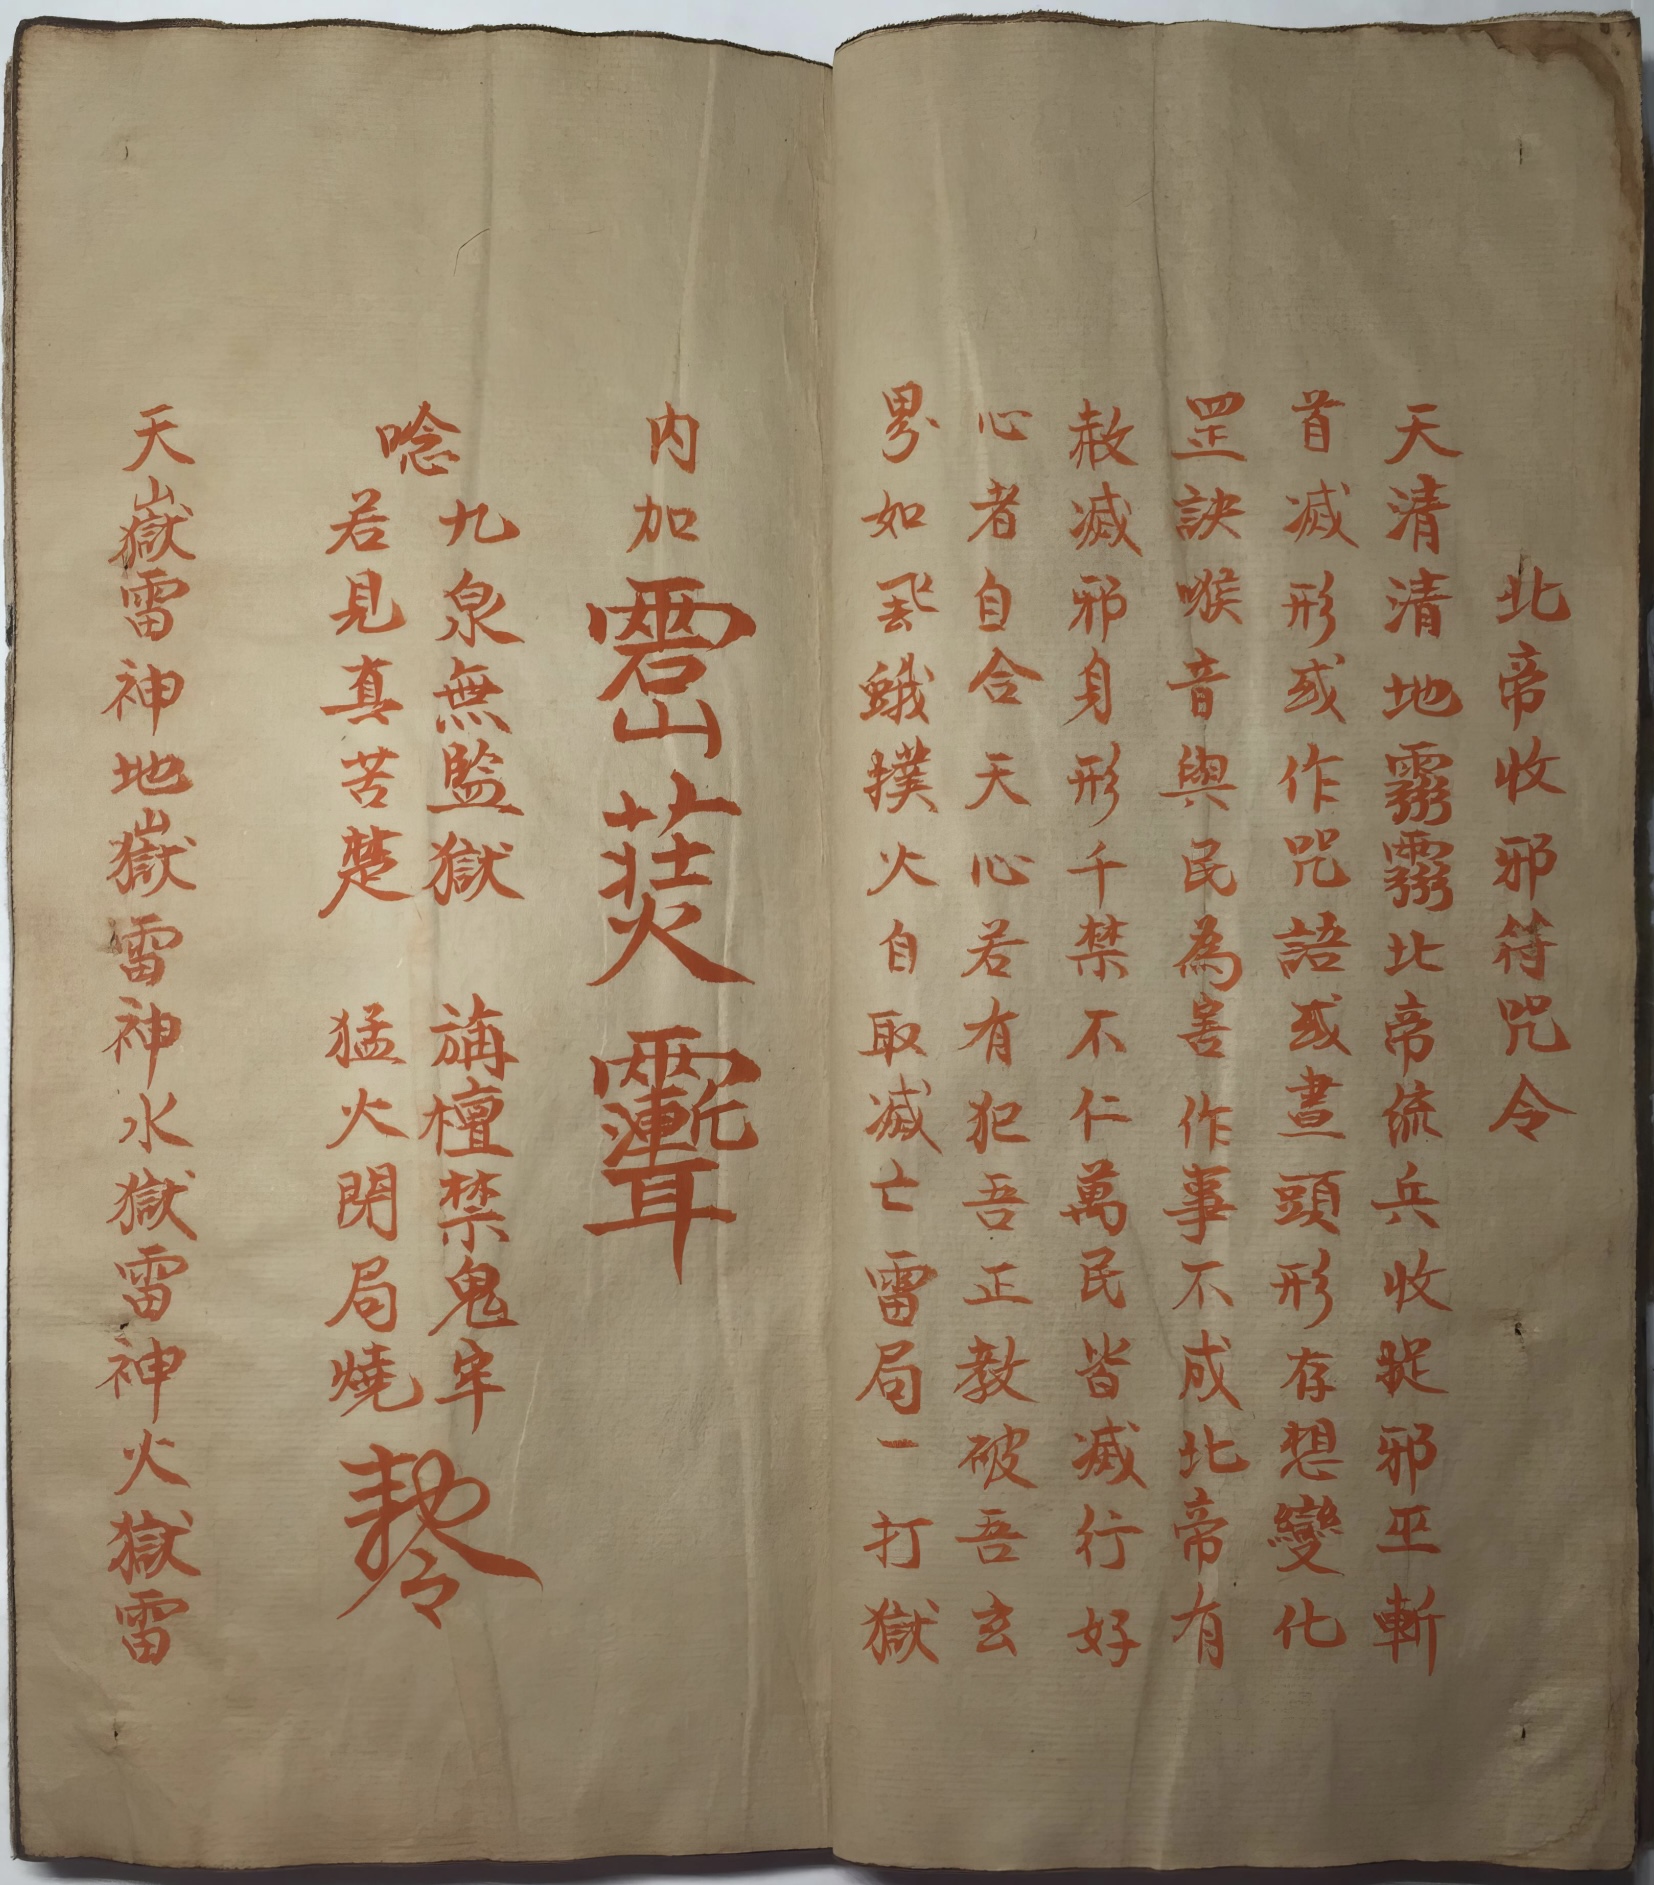 北帝收邪符咒令
天清清地靈靈北帝統兵收捉邪巫斬
首滅形或作咒語或畫頭形存想變化
罡訣喉音與民為害作事不成北帝有
赦滅邪身形千禁不仁萬民皆滅行好
心者自合天心若有犯吾正教破吾玄
界如飛蛾撲火自取滅亡雷局一打獄
內加
唸
九泉無監獄 旃檀禁鬼牢
若見真苦楚 猛火閉局燒
天嶽雷神地嶽雷神水獄雷神火獄雷